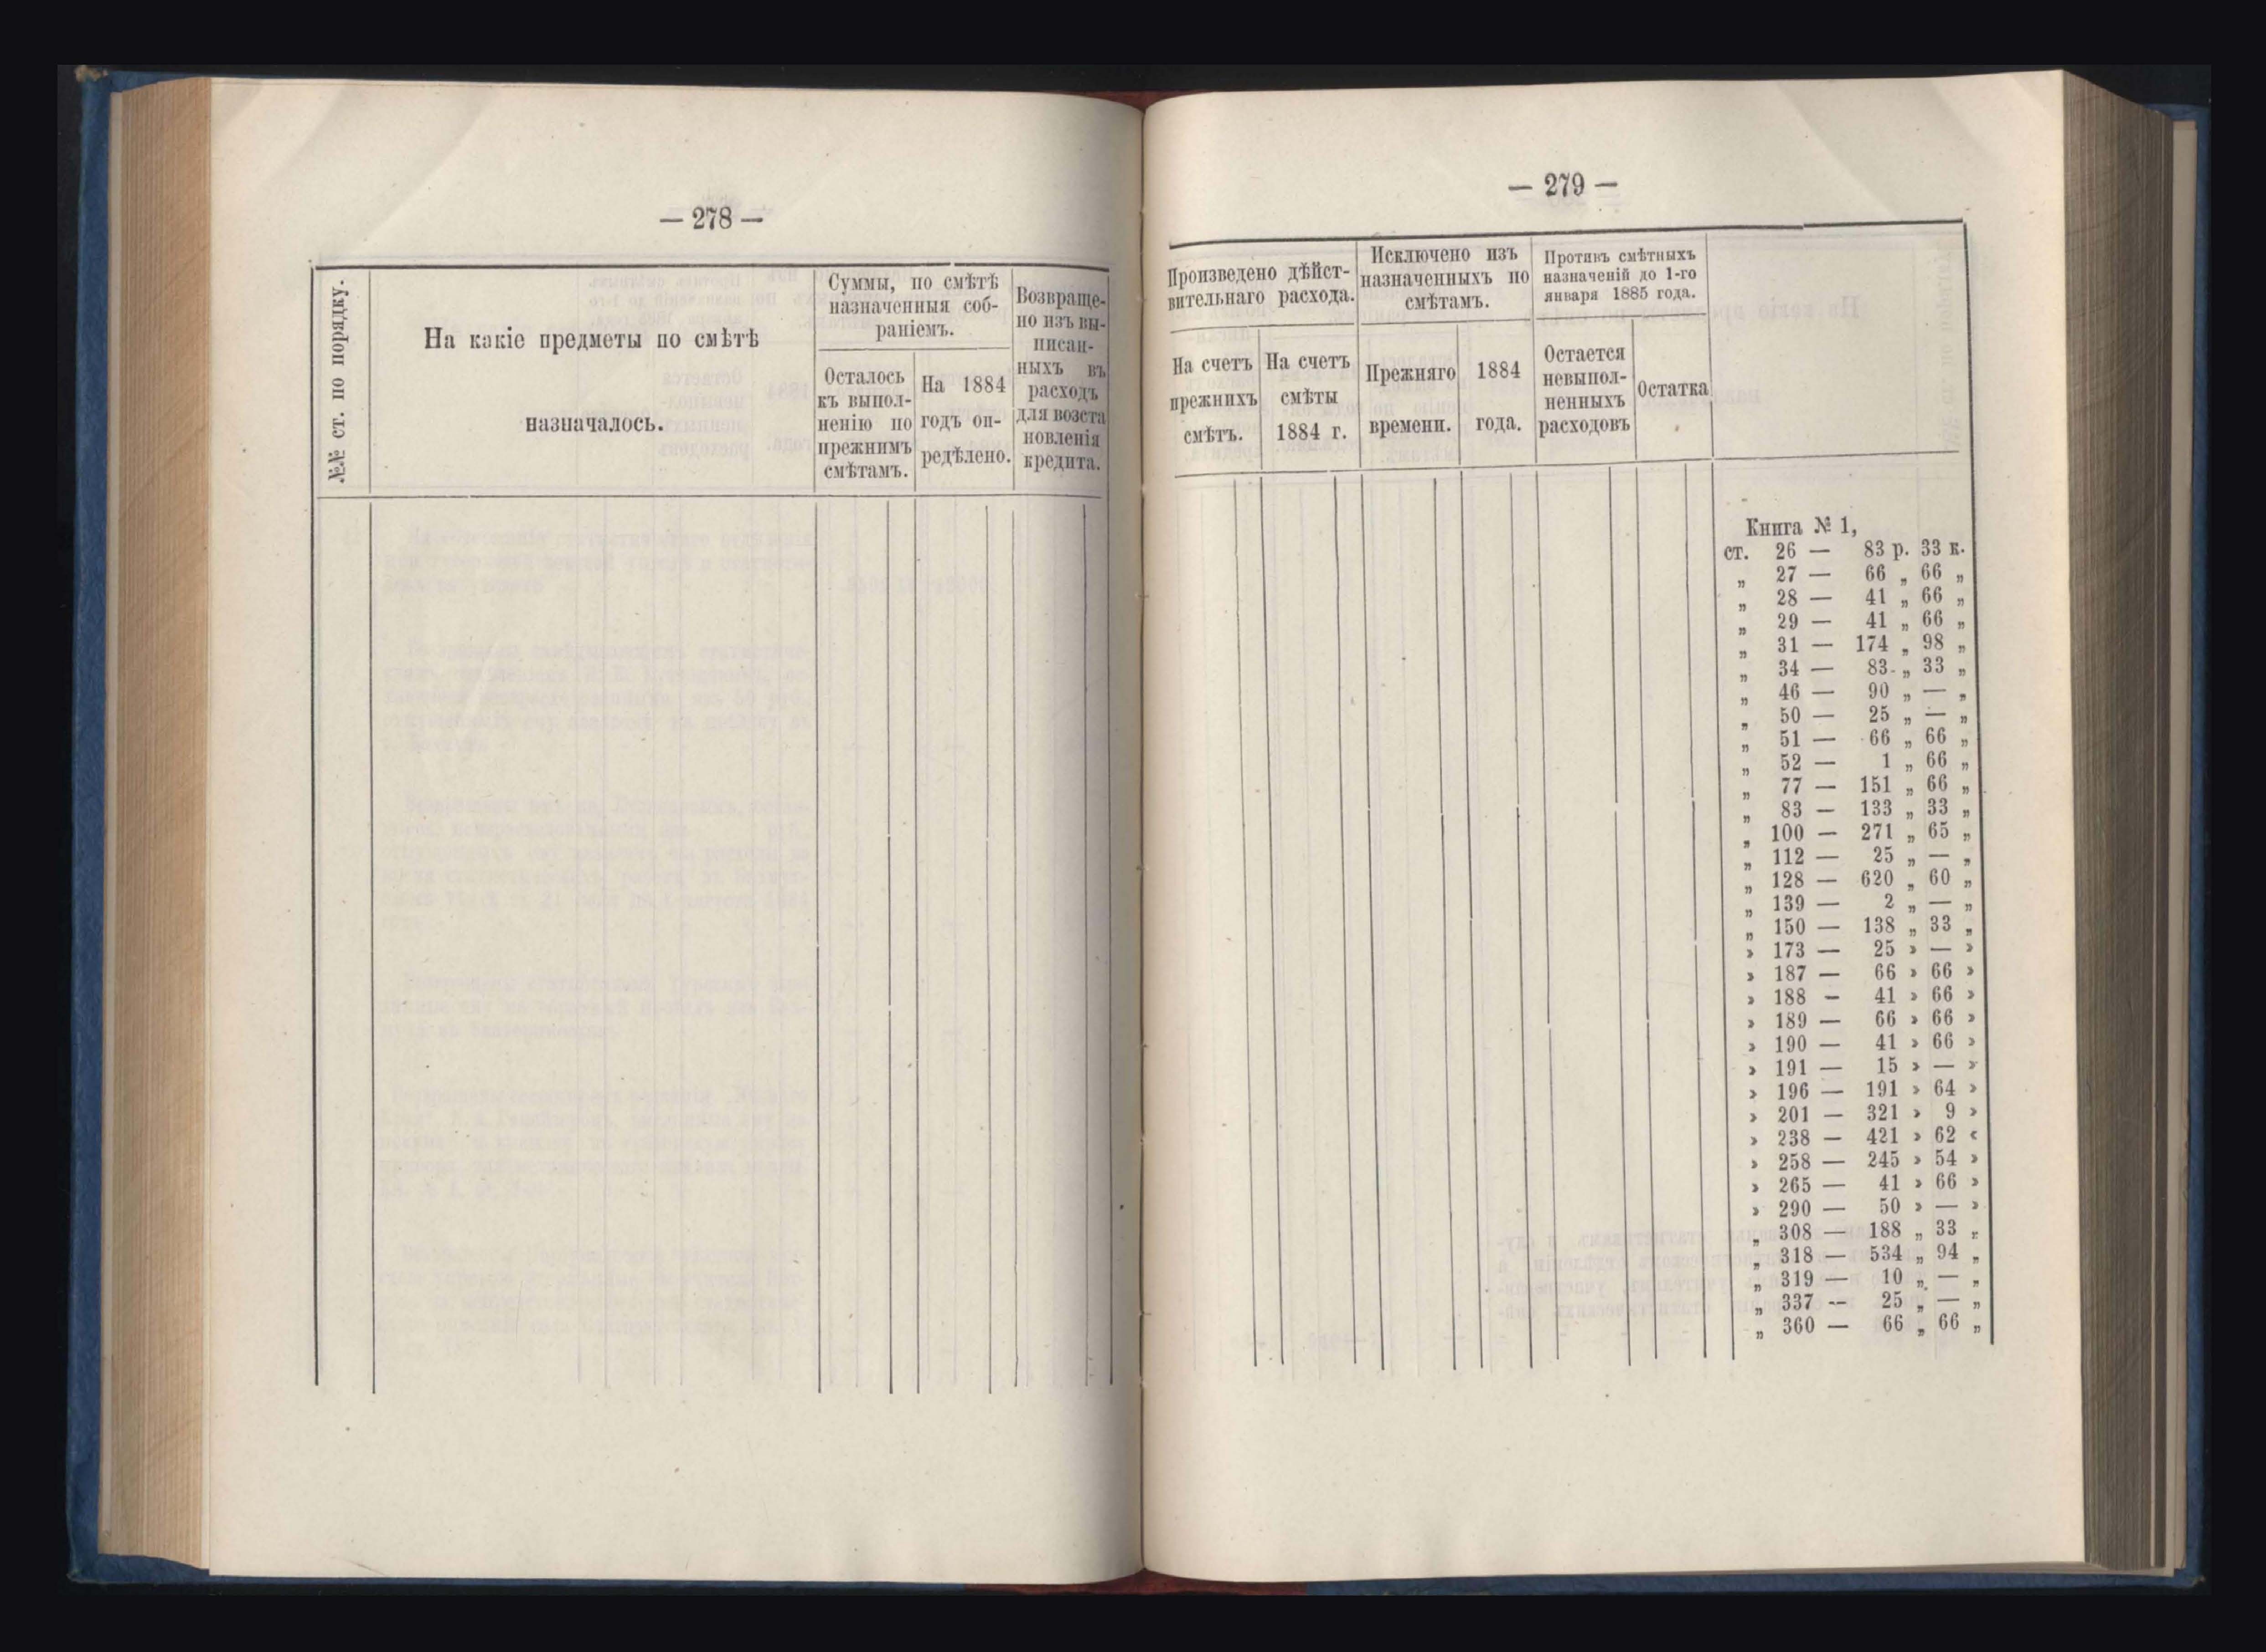 — 278 —
№№ ст. по порядку.
На какіе предметы по смѣтѣ
назначалось.
Суммы, по смѣтѣ
назначенныя соб-
раніемъ.
Осталось
къ выпол-
ненію по
прежнимъ
смѣтамъ.
На 1884
годъ оп-
редѣлено.
Возвраще-
но изъ вы-
писан-
ныхъ въ
расходъ
для возста
новленія
кредита.
— 279 —
Произведено дѣйст-
вительнаго расхода.
На счетъ
прежнихъ
смѣтъ.
На счетъ
смѣты
1884 г.
Исключено изъ
назначенныхъ по
смѣтамъ.
Прежняго
времени.
1884
года.
Противъ смѣтныхъ
назначеній до 1-го
января 1885 года.
Остается
невыпол-
ненныхъ
расходовъ
Остатка
Книга № 1,
ст. 26 — 83 р. 33 к.
„ 27 — 66 „ 66 „
„ 28 — 41 „ 66 „
„ 29 — 41 „ 66 „
„ 31 — 174 „ 98 „
„ 34 — 83 „ 33 „
„ 46 — 90 „ — „
„ 50 — 25 „ — „
„ 51 — 66 „ 66 „
„ 52 — 1 „ 66 „
„ 77 — 151 „ 66 „
„ 83 — 133 „ 33 „
„ 100 — 271 „ 65 „
„ 112 — 25 „ — „
„ 128 — 620 „ 60 „
„ 139 — 2 „ — „
„ 150 — 138 „ 33 „
» 173 — 25 » — »
» 187 — 66 » 66 »
» 188 — 41 » 66 »
» 189 — 66 » 66 »
» 190 — 41 » 66 »
» 191 — 15 » — »
» 196 — 191 » 64 »
» 201 — 321 » 9 »
» 238 — 421 » 62 «
» 258 — 245 » 54 »
» 265 — 41 » 66 »
» 290 — 50 » — »
„ 308 — 188 „ 33 „
„ 318 — 534 „ 94 „
„ 319 — 10 „ — „
„ 337 — 25 „ — „
„ 360 — 66 „ 66 „